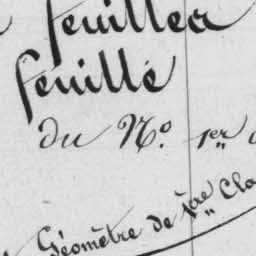 feuille
feuillé
du N.º 1.er
Géomètre de 1ère Cla